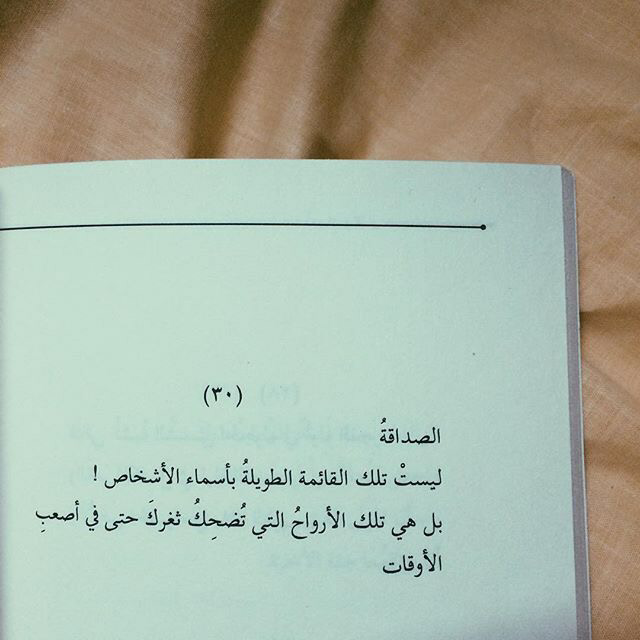 (٣٠)
الصداقةُ
ليستْ تلك القائمة الطويلةُ بأسماء الأشخاص !
بل هي تلك الأرواحُ التي تُضحِكُ ثغركَ حتى في أصعبِ
الأوقات